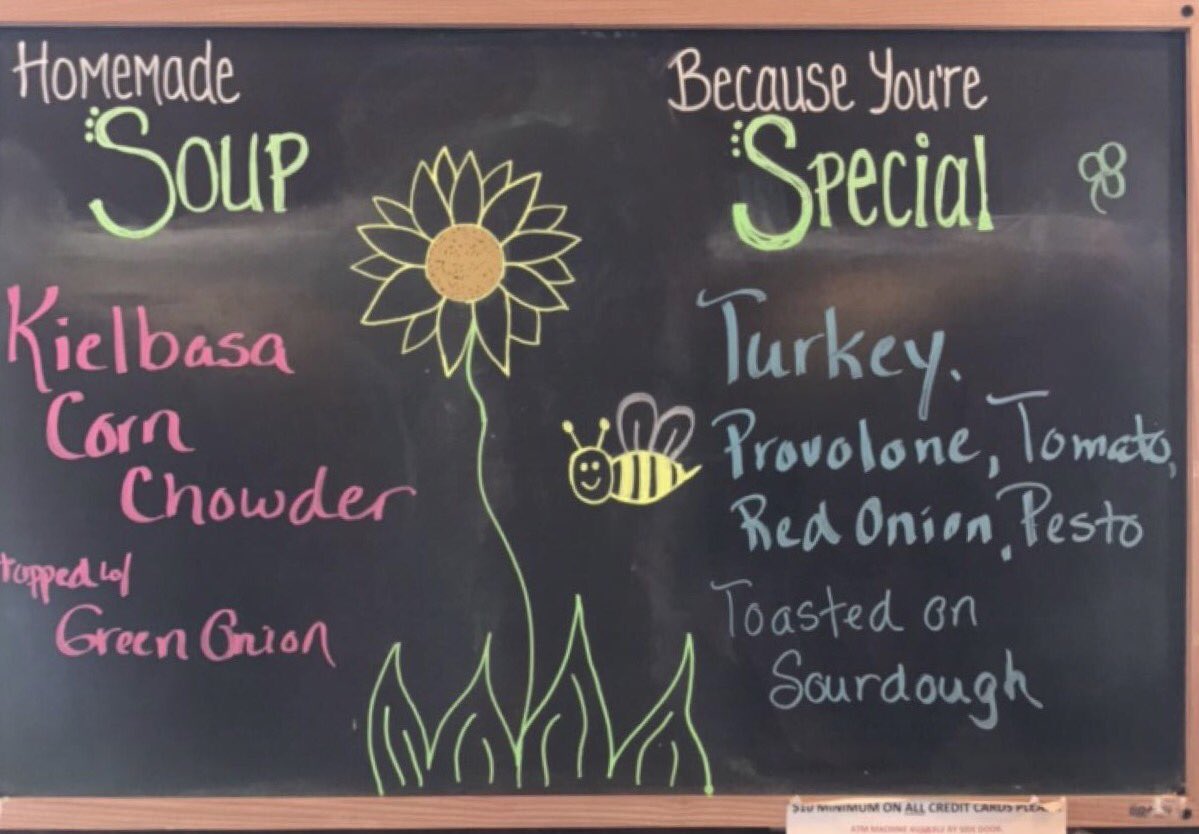 Homemade
Soup
Kielbasa
Corn
Chowder
topped w/
Green Onion
Because You're
Special
Turkey.
Provolone, Tomato,
Red Onion, Pesto
Toasted on
Sourdough
$10 MINIMUM ON ALL CREDIT CARDS
ATM MACHINE BY SIDE DOOR.